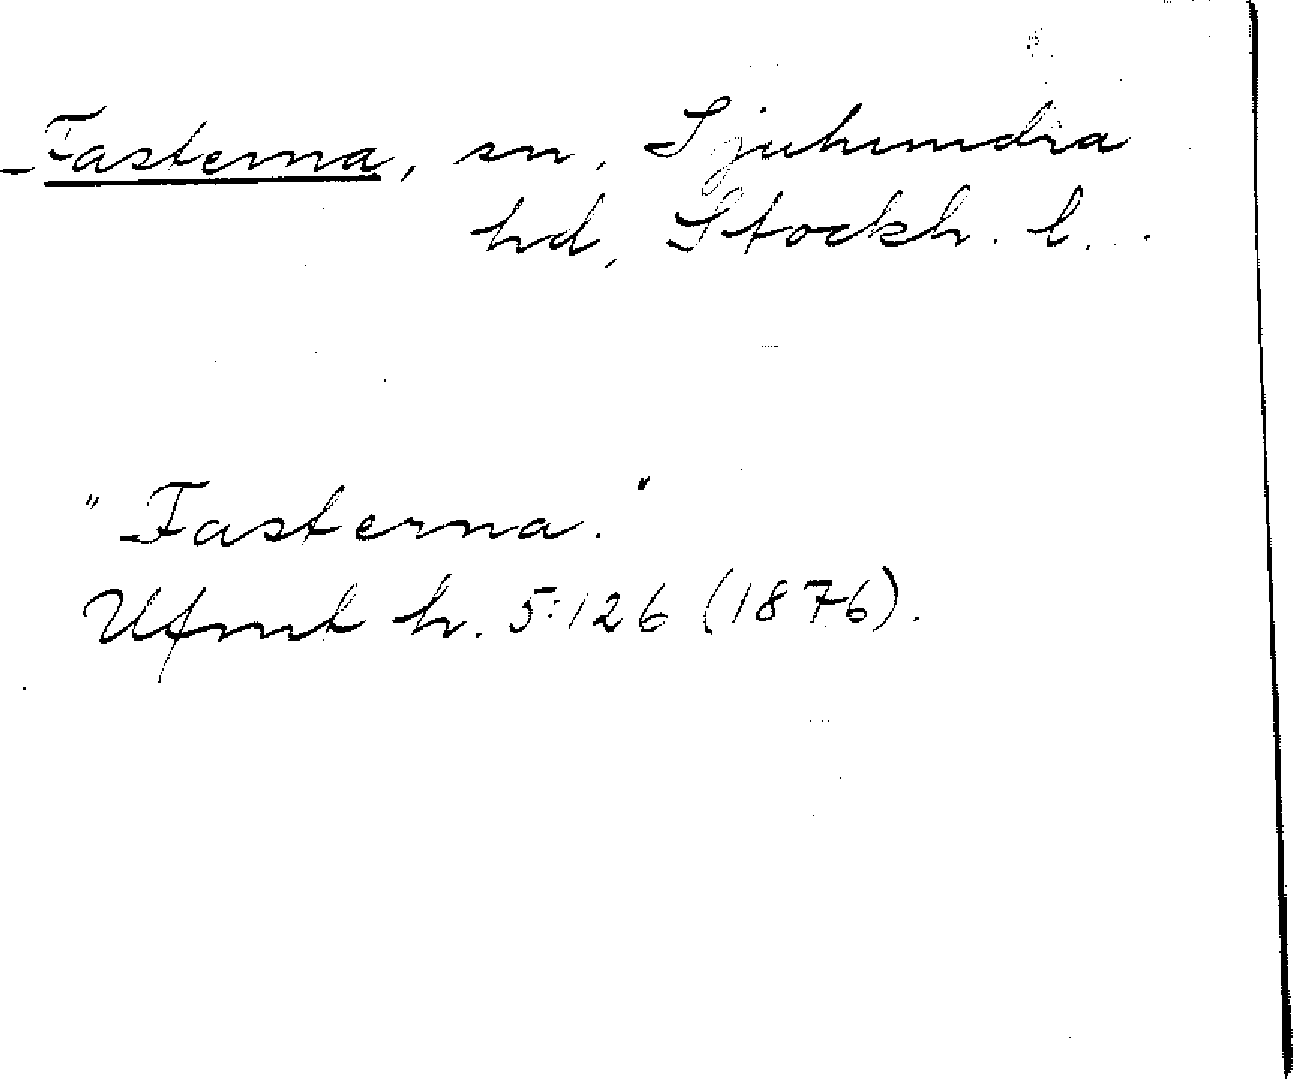 Fasterna, sn, Sjuhundra
hd, Stockh. l.
"Fasterna."
Ufmt h. 5:126 (1876).